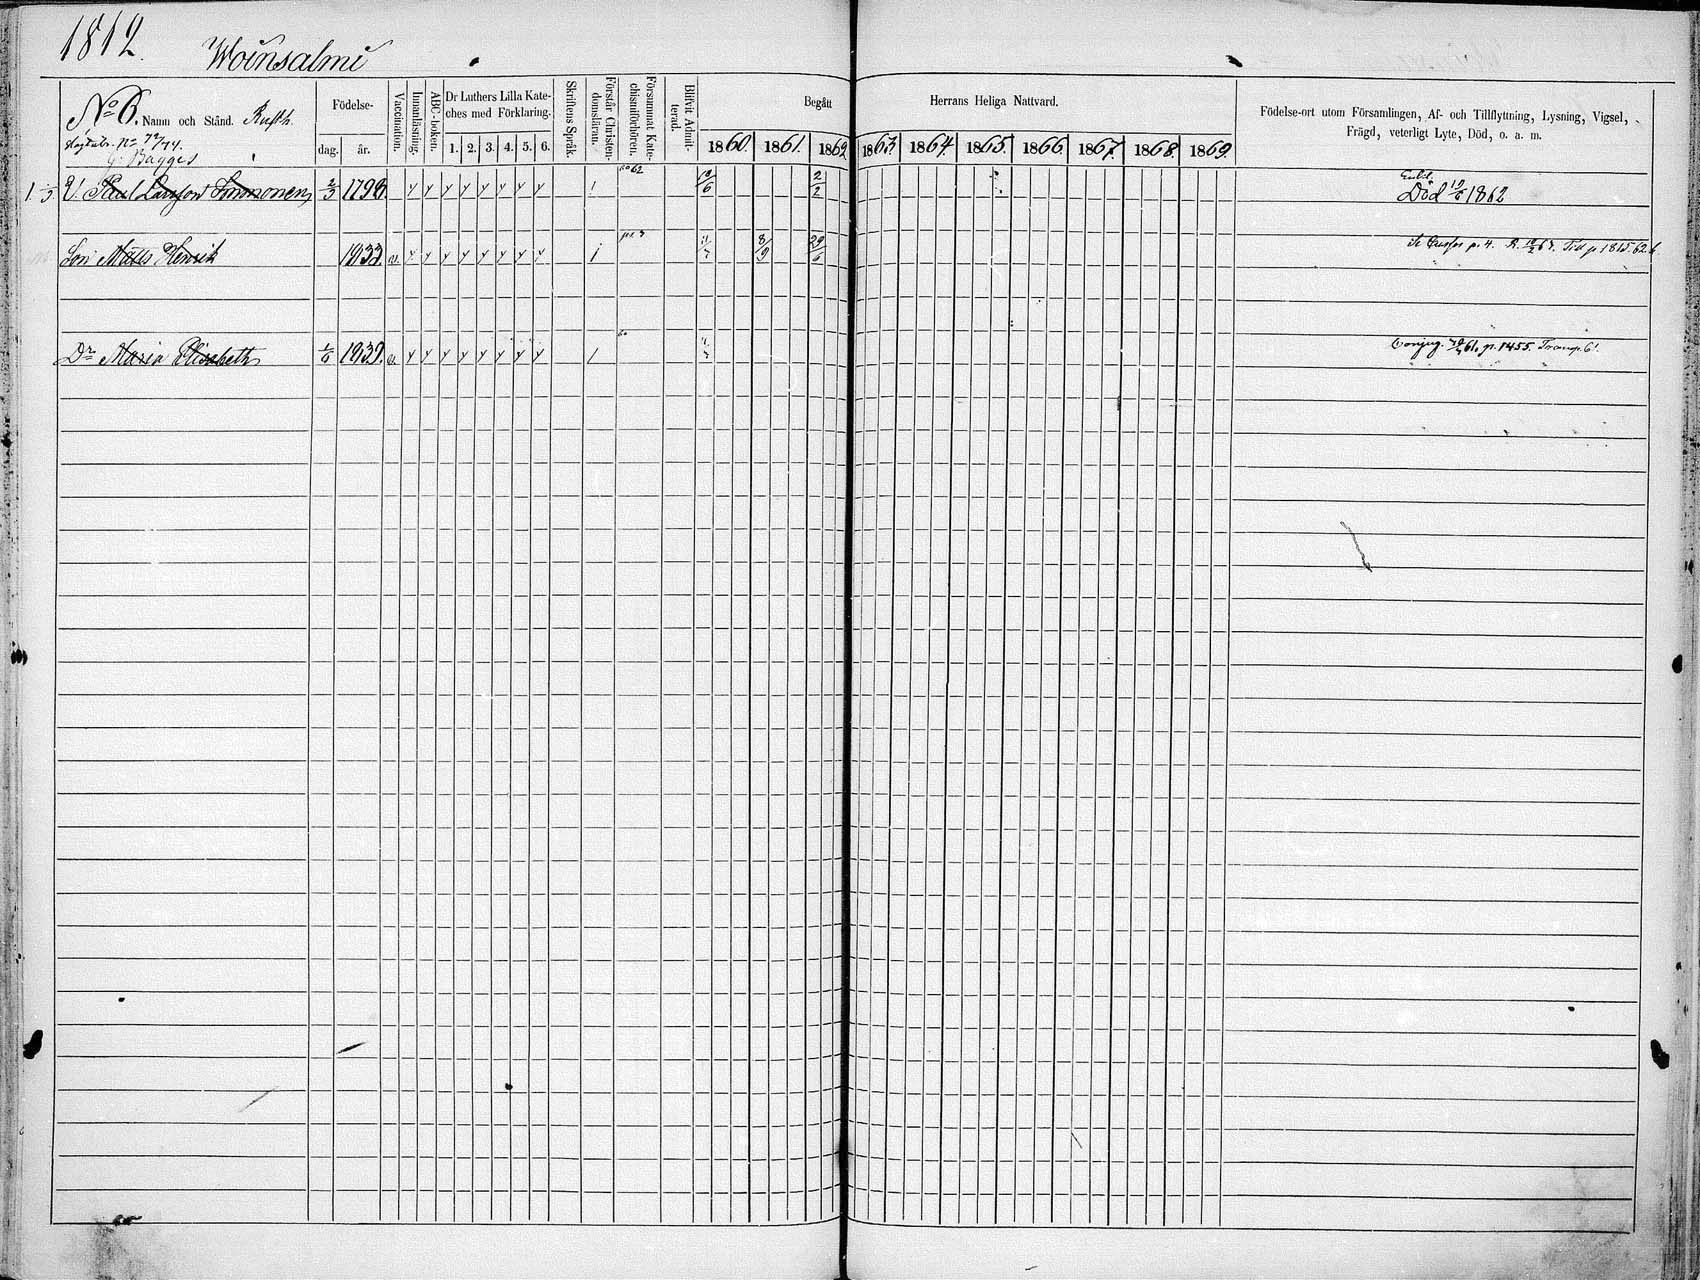 1812.
Woinsalmi
No 6. Namn och Stånd. Rusth.
G: Bagges
Födelse-
dag. år.
Vaccination.
Innanläsning.
ABC-boken.
Dr Luthers Lilla Kate-
ches med Förklaring.
1. 2. 3. 4. 5. 6.
Skriftens Språk.
Förstår Christen-
domsläran.
Försummat Kate-
chismiförhören.
Blifvit Admit-
terad.
Begått Herrans Heliga Nattvard.
1860. 1861. 1862 1863. 1864. 1865. 1866. 1867. 1868. 1869.
Födelse-ort utom Församlingen, Af- och Tillflyttning, Lysning, Vigsel,
Frägd, veterligt Lyte, Död, o. a. m.
Paul Larsson Immonen 2/3 1798. 10/6 2/2 Död 19/6 1862
Son Matts Henrik 1833. v. 8/9 29/6 p. 4. p 1815. 62.
Dr Maria Elisabeth 1/6 1839. v. Conjug. 61. p. 1455.